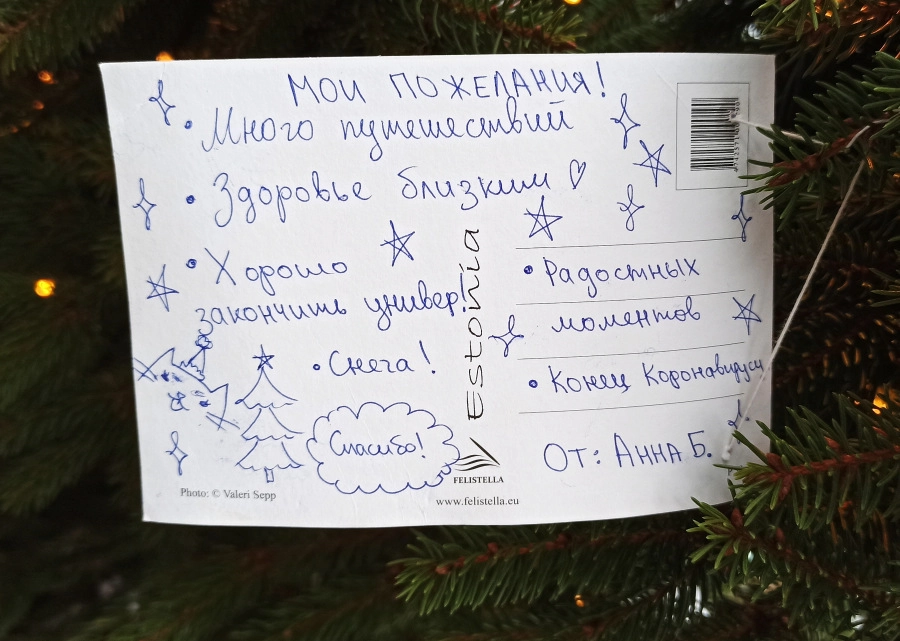 Мои пожелания!
• Много путешествий
• Здоровье близким ♡
• Хорошо
закончить универ!
• Снега!
Спасибо!
Estonia
• Радостных
моментов
• Конец Коронавируси
От: Анна Б.
FELISTELLA
www.felistella.eu
Photo: © Valeri Sepp